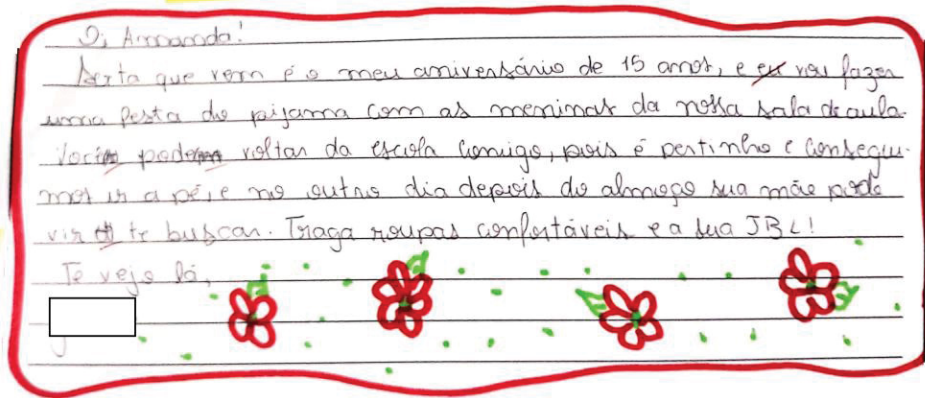 Oi Amanda!
Sexta que vem é o meu aniversário de 15 anos, e eu vou fazer
uma festa do pijama com as meninas da nossa sala de aula.
Você podem voltar da escola comigo, pois é pertinho e consegui-
mos ir a pé, e no outro dia depois do almoço sua mãe pode
vir te buscar. Traga roupas confortáveis e a sua JBL!
Te vejo lá,